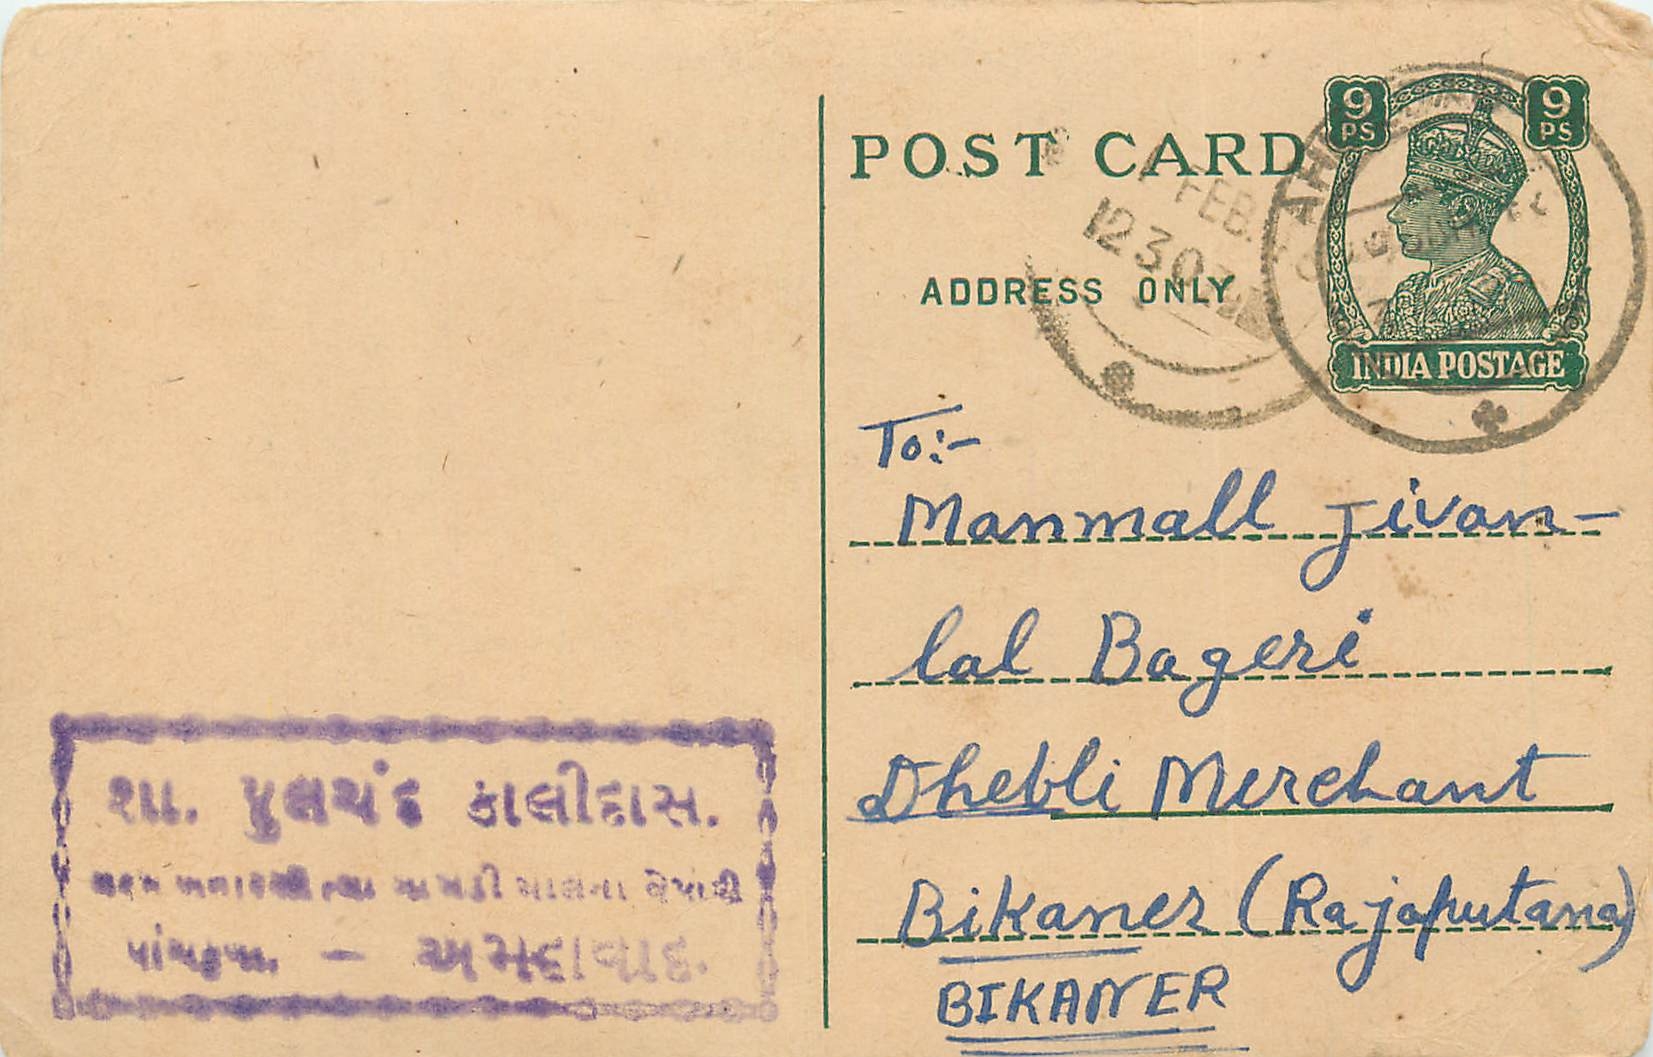 POST CARD
ADDRESS ONLY
9 PS 9 PS
INDIA POSTAGE
FEB.
1230
To:-
Manmall Jivan-
lal Bageri
Dhebli Merchant
Bikaner (Rajaputana)
BIKANER
શા. ફુલચંદ કાલીદાસ.
વેપારી
પાંચકુવા. — અમદાવાદ.